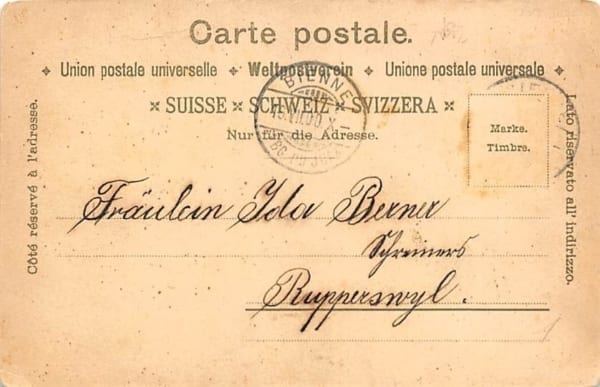 Carte postale.
Union postale universelle ✦ Weltpostverein ✦ Unione postale universale
SUISSE × SCHWEIZ × SVIZZERA
Nur für die Adresse.
BIENNE
Marke.
Timbre.
Côté réservé à l'adresse.
Lato riservato all' indirizzo.
Fräulein Ida Berner
Schreiners
Rupperswyl.